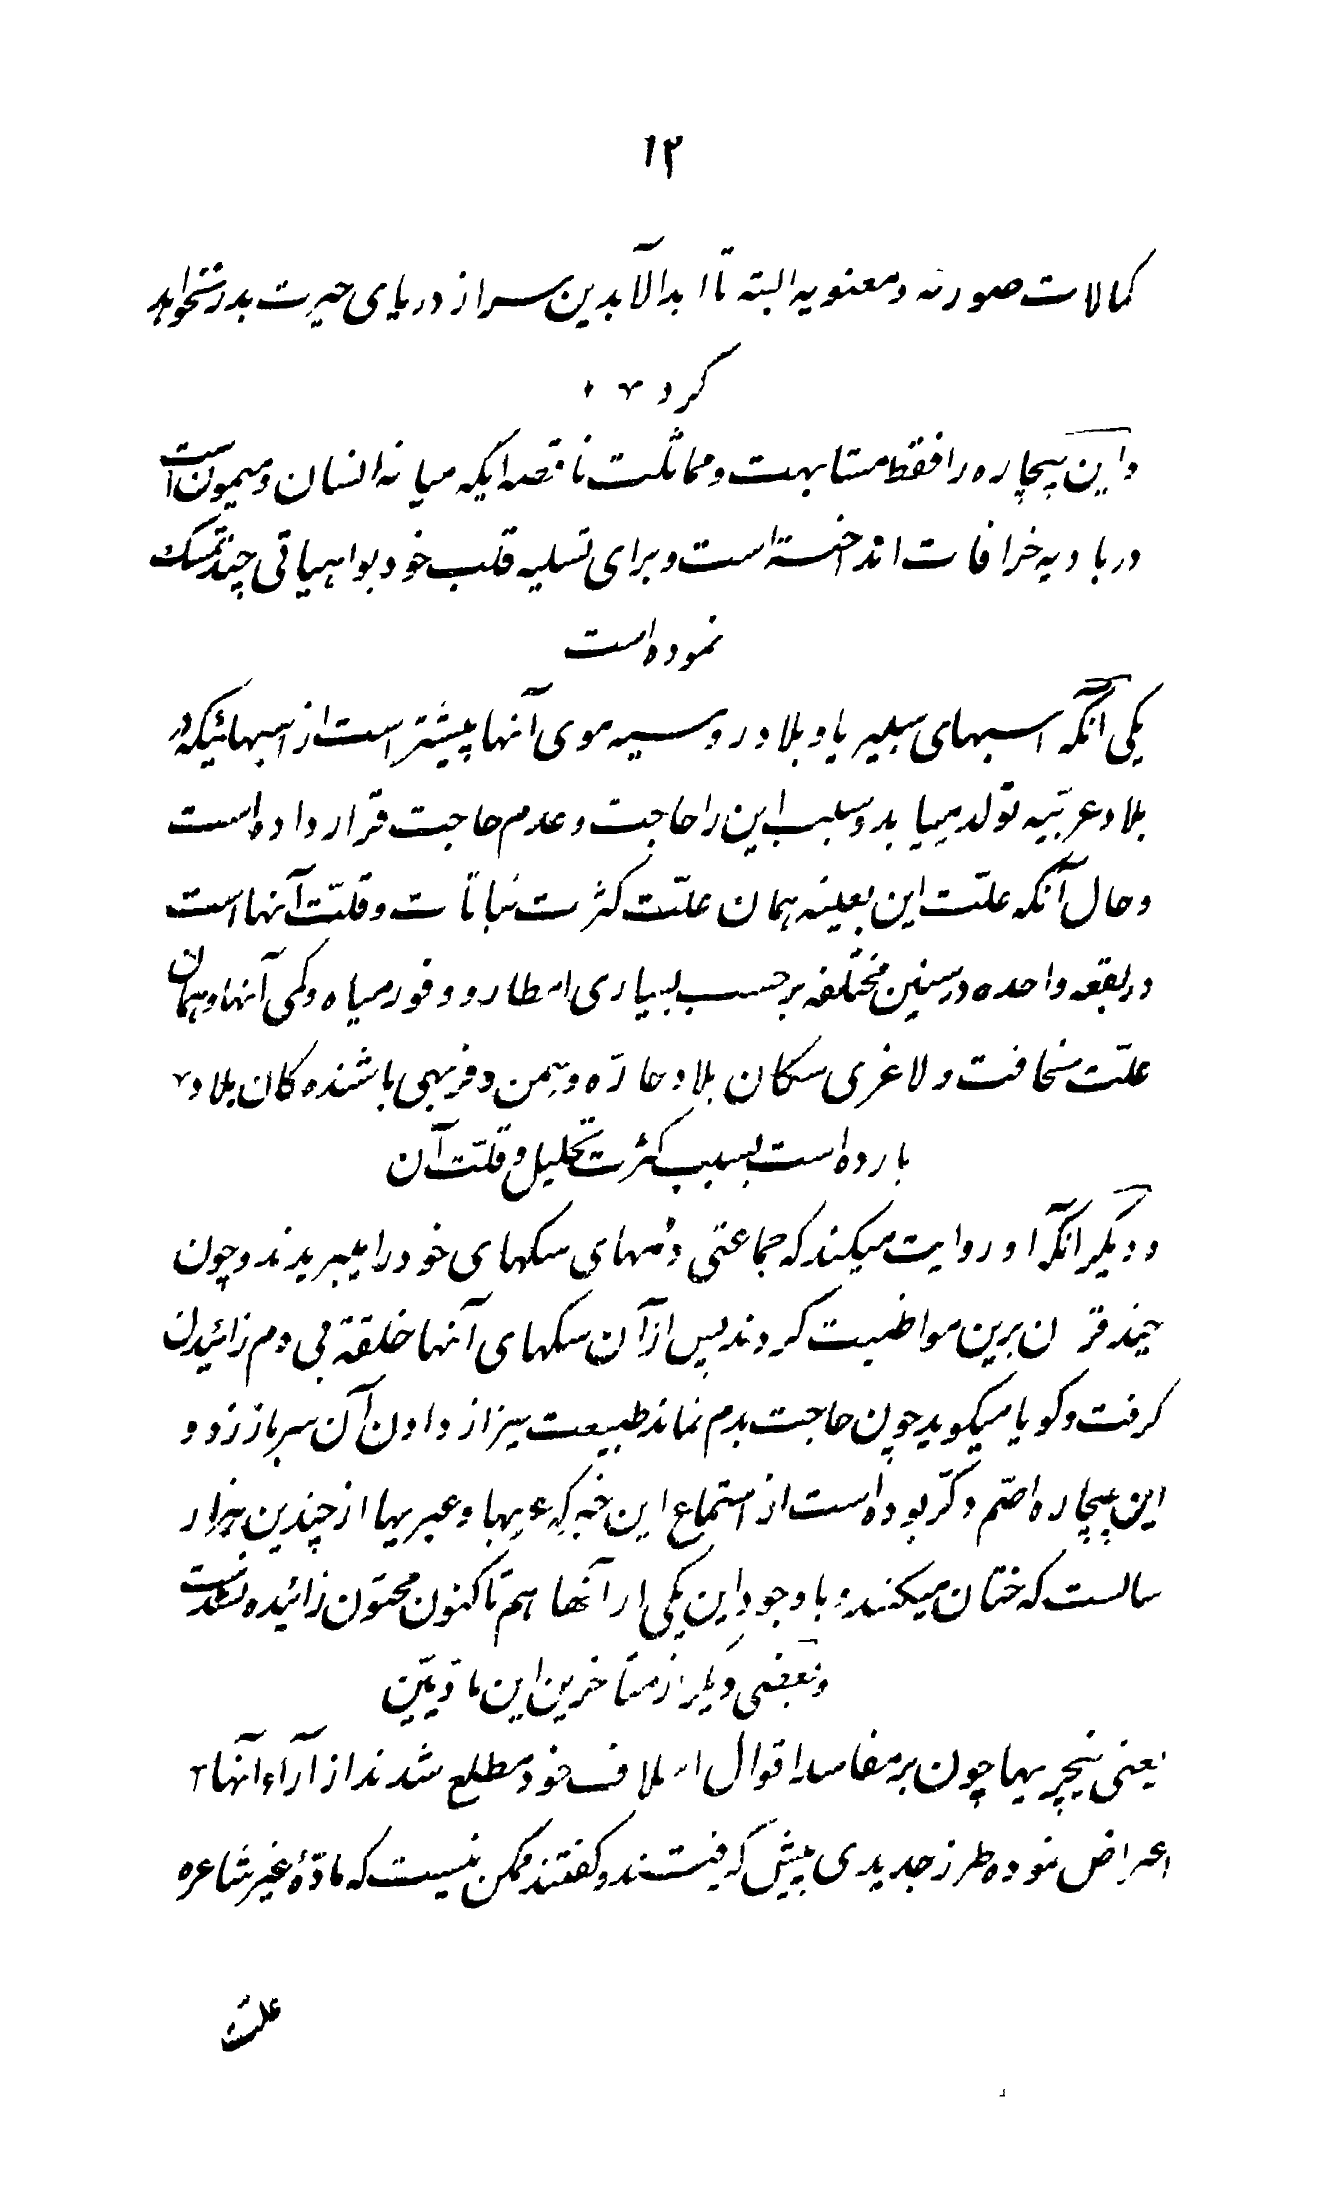 ۱۲
کمالات صوریه و معنویه البته تا ابد الآبدین سر از دریای حیرت بدر نخواهد
کرد
و این بیچاره را فقط مشابهت و مماثلت ناقصه ایکه میانه انسان و میمون است
در بادیه خرافات انداخته است و برای تسلیه قلب خود بواهیاتی چند تمسک
نموده است
یکی آنکه اسبهای سیبریا و بلاد روسیه موی آنها بیشتر است از اسبهائیکه در
بلاد عربیّه تولد مییابد و سبب این را حاجت و عدم حاجت قرار داده است
و حال آنکه علّت این بعینه همان علّت کثرت نباتات و قلّت آنها است
در بقعه واحده در سنین مختلفه بر حسب بسیاری امطار و وفور میاه و کمی آنها و همان
علّت نحافت و لاغری سکان بلاد حارّه و سمن و فربهی باشنده کان بلاد
بارده است بسبب کثرت تحلیل و قلّت آن
و دیگر آنکه او روایت میکند که جماعتی دُمهای سکهای خود را میبریدند و چون
چند قرن برین مواظبت کردند پس از آن سکهای آنها خلقةً بی دم زائیدن
کرفت و کویا میکوید چون حاجت بدم نماند طبیعت نیز از دادن آن سر باز زد و
این بیچاره اصّم و کر بوده است از استماع این خبر که عربها و عبریها از چندین هزار
سالست که ختان میکنند و با وجود این یکی از آنها هم تا کنون مختون زائیده نشده است
و بعضی دیکر از متاخرین این مادّییّن
یعنی نیچریها چون بر مفاسد اقوال اسلاف خود مطلع شدند از آراء آنها
اعراض نموده طرز جدیدی پیش کرفتند و کفتند ممکن نیست که مادّهٔ غیر شاعره
علت